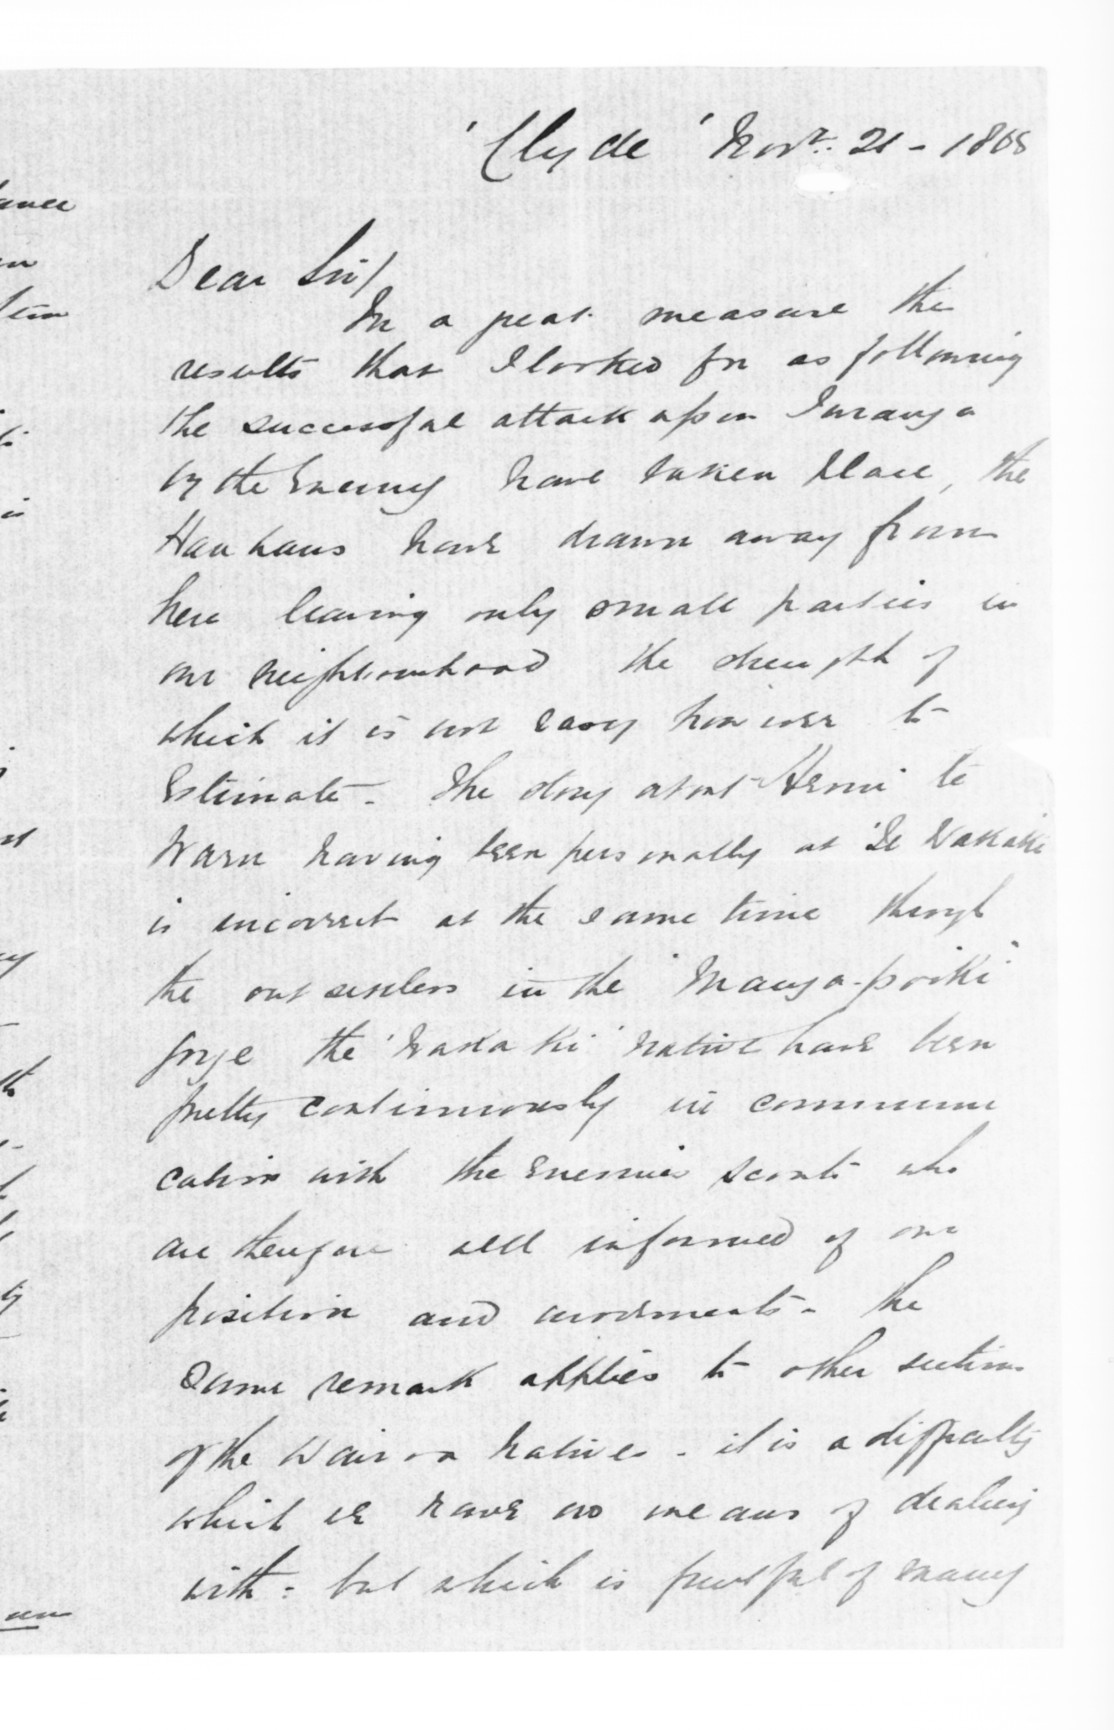 'Clyde' Novr. 21 - 1868
Dear Sir/
In a great measure the
results that I looked for as following
the successful attack upon Turanga
by the Enemy have taken place, the
Hauhaus have drawn away from
here leaving only small parties in
our neighbourhood the strength of
which it is not easy however to
Estimate - The story about Henri te
having been personally at 'Te Wakaki
is incorrect at the same time through
the out settlers in the "Manga-poriki"
gorge the 'Wakaki' Native have been
pretty continuously in communi
cation with the Enemies scouts who
are therefore well informed of our
position and movements - the
same remark applies to other sections
of the Wairoa Natives - it is a difficulty
which we have no means of dealing
with - but which is fruitful of many
ance
in